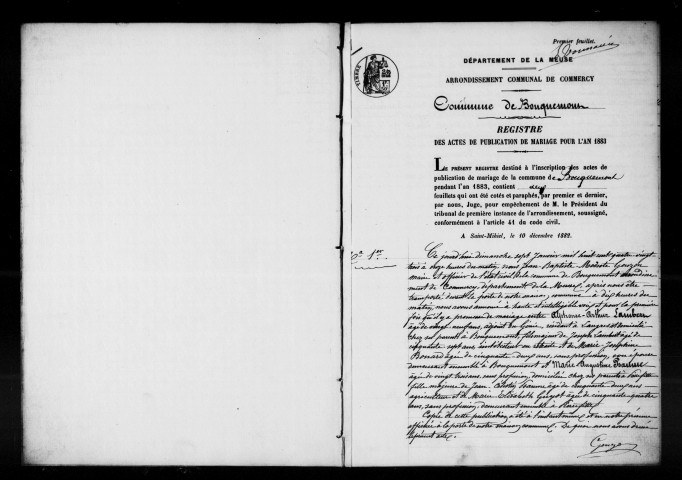 Premier feuillet.
TIMBRE
DÉPARTEMENT DE LA MEUSE
ARRONDISSEMENT COMMUNAL DE COMMERCY
Commune de Bouquemont
REGISTRE
DES ACTES DE PUBLICATION DE MARIAGE POUR L'AN 1883
LE PRÉSENT REGISTRE destiné à l'inscription des actes de
publication de mariage de la commune de Bouquemont
pendant l'an 1883, contient deux
feuillets qui ont été cotés et paraphés, par premier et dernier,
par nous, Juge, pour empêchement de M. le Président du
tribunal de première instance de l'arrondissement, soussigné,
conformément à l'article 41 du code civil.
A Saint-Mihiel, le 10 décembre 1882.
N° 1er
Ce jourd'hui dimanche sept Janvier mil huit cent quatre vingt
trois à onze heures du matin, nous Jean Baptiste Modeste
maire et officier de l'état civil de la commune de Bouquemont arrondisse
ment de Commercy, département de la Meuse, après nous être
transporté devant la porte de notre maison commune à dix heures du
matin, nous avons annoncé à haute et intelligible voix et pour la première
fois qu'il y a promesse de mariage entre Alphonse Arthur Lambert
âgé de vingt neuf ans, du Génie, résidant à Langres et domicilié
chez ses parents à Bouquemont, fils majeur de Joseph Lambert âgé de
cinquante sept ans instituteur en retraite et de Marie Joséphine
âgée de cinquante deux ans, sans profession, son épouse
demeurant ensemble à Bouquemont et Marie Augustine
âgée de vingt trois ans, sans profession, domiciliée chez ses parents à
fille majeure de Jean âgé de cinquante deux ans
agriculteur et de Marie Elisabeth Guyot âgée de cinquante quatre
ans, sans profession, demeurant ensemble à
Copie de cette publication a été à l'instant même et en notre présence
affichée à la porte de notre maison commune. De quoi nous avons dressé
le présent acte.